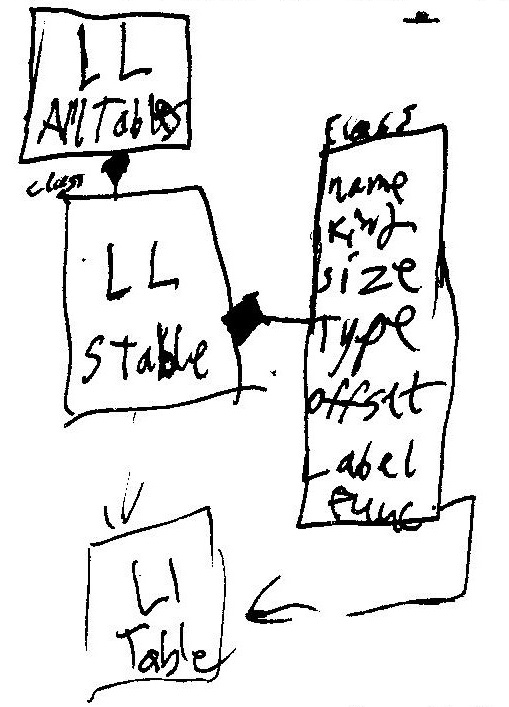 LL
AllTables
class
LL
STable
class
name
Kind
size
Type
offset
Label
func
LL
Table